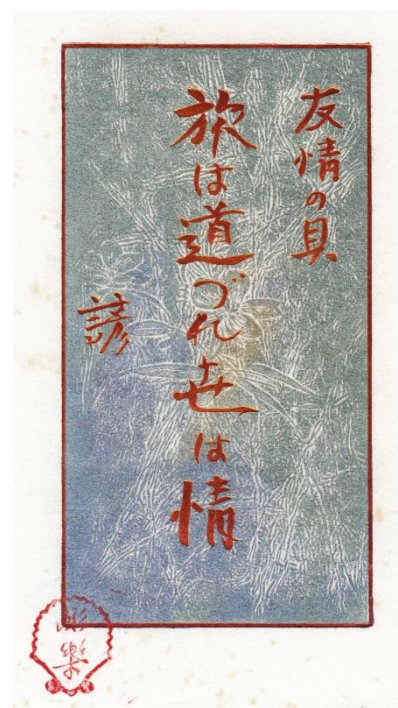 友情の具
旅は道づれ世は情
諺
彫樂